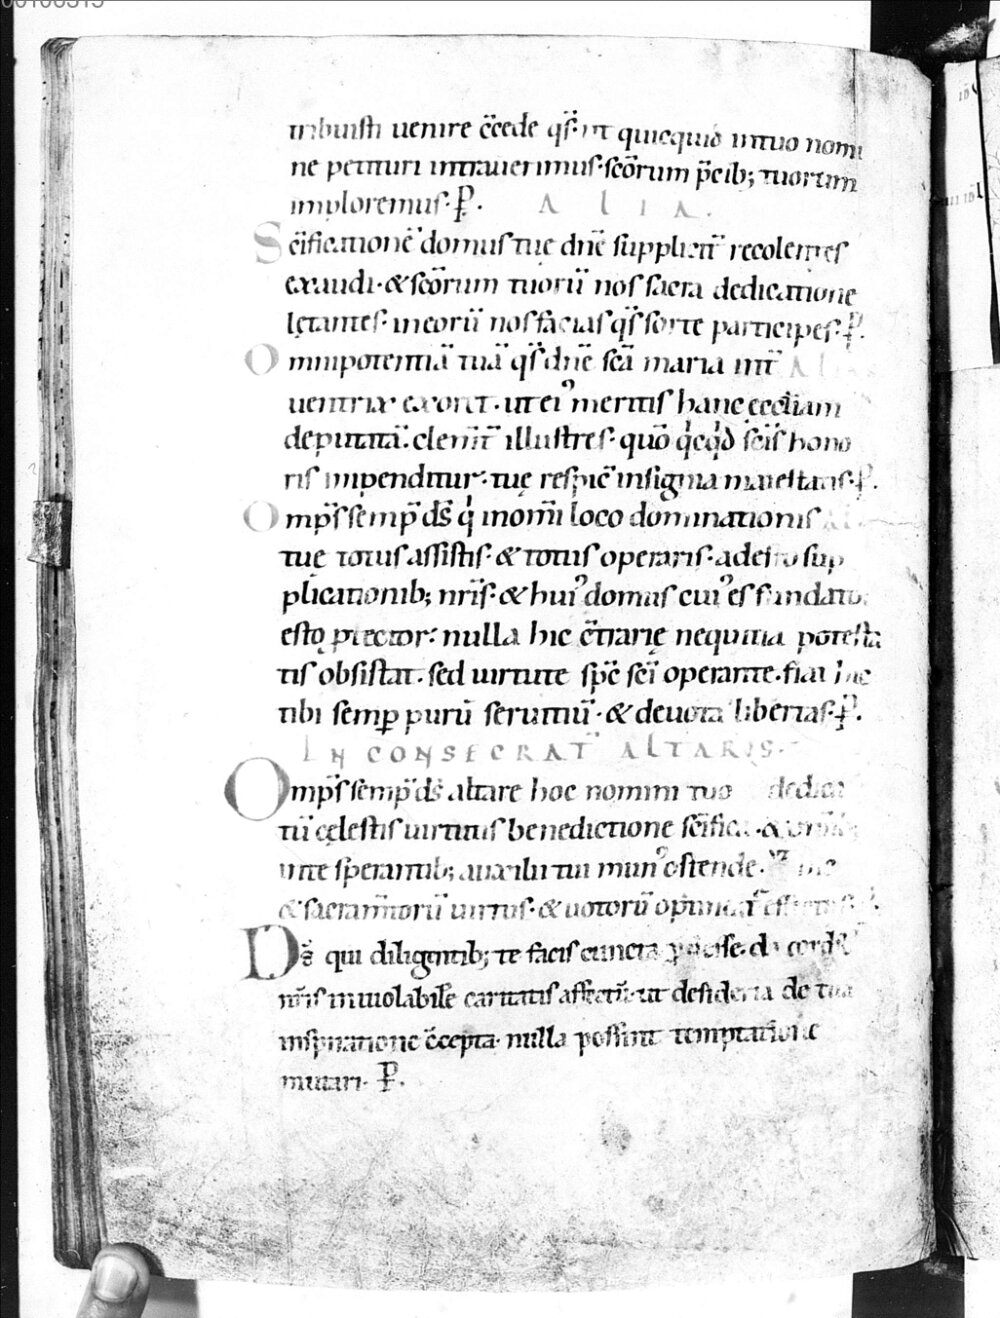 00108515
tribuisti uenire c̄cede qs̄· ut quicquid in tuo nomi
ne petituri intrauerimus· sc̄orum p̄cib; tuorum
imploremus· P̄.
ALIA.
Sc̄ificationē domus tuę dn̄e supplicit̄ recolentes
exaudi· & sc̄orum tuorū nos sacra dedicatione
lętantes· in eorū nos facias qs̄ sorte participes· P̄.
Omnipotentiā tuā qs̄ dn̄e sc̄a maria int̄ ALIA
uentrix exoret· ut ei᾽ meritis hanc ęccl̄iam
deputatā· clem̄t̄ illustres· quō q̇cq̇d sc̄is hono
ris impenditur· tuę respic̄ insignia maiestatis· P̄.
Omp̄s semp̄ ds̄ q̇ in om̄i loco dominationis
tuę totus assistis· & totus operaris· adesto sup
plicationib; nr̄is· & hui᾽ domus cui᾽ es fundator
esto ptector· nulla hic c̄trarię nequitia potesta
tis obsistat· sed uirtute sp̄c sc̄i operante· fiat hic
tibi semp purū seruitiū· & deuota libertas· P̄.
IN CONSECRAT̄ ALTARIS·
Omp̄s semp̄ ds̄ altare hoc nomini tuo dedica
tū cęlestis uirtutis benedictione sc̄ifica· &
in te sperantib; auxilii tui mun᾽ ostende·
& sacram̄torū uirtus· & uotorū
Ds̄ qui diligentib; te facis cuncta
nr̄is inuiolabilē caritatis affectū· ut desideria de tua
inspiratione c̄cepta· nulla possint temptatione
mutari· P̄.